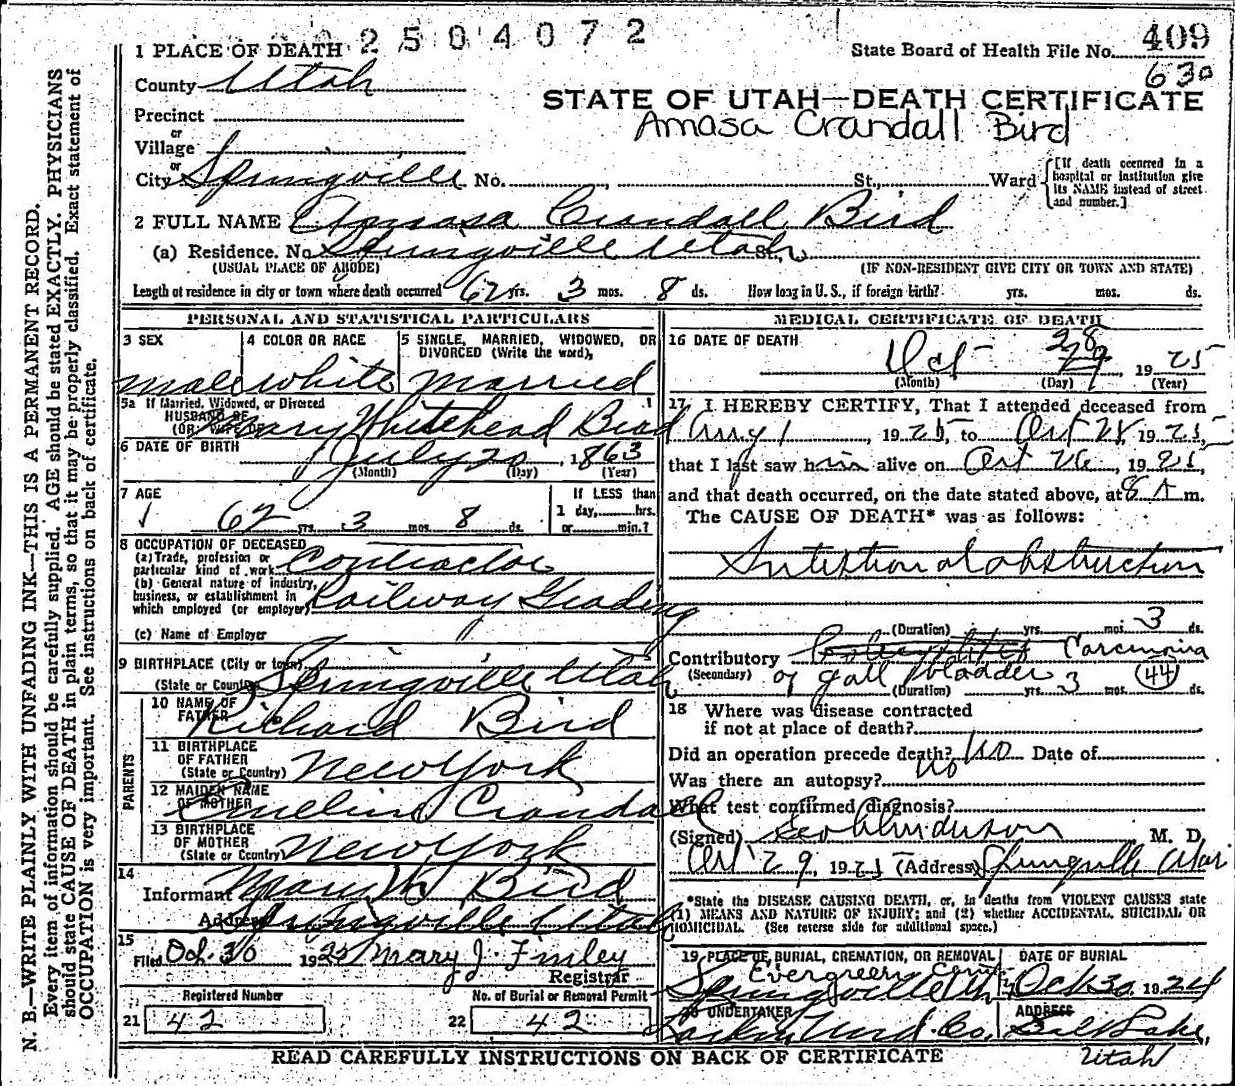 2504072
1 PLACE OF DEATH
State Board of Health File No. 409
630
County Utah
STATE OF UTAH—DEATH CERTIFICATE
Amasa Crandall Bird
Precinct
or
Village
or
City Springville No. , St., Ward
[If death occurred in a hospital or institution give its NAME instead of street and number.]
2 FULL NAME Amasa Crandall Bird
(a) Residence. No. Springville Utah St.,
(USUAL PLACE OF ABODE) (IF NON-RESIDENT GIVE CITY OR TOWN AND STATE)
Length of residence in city or town where death occurred 62 yrs. 3 mos. 8 ds. How long in U. S., if foreign birth? yrs. mos. ds.
PERSONAL AND STATISTICAL PARTICULARS
3 SEX 4 COLOR OR RACE 5 SINGLE, MARRIED, WIDOWED, OR
DIVORCED (Write the word),
male white married
5a If Married, Widowed, or Divorced
HUSBAND OF
(OR) WIFE OF Mary Whitehead Bird
6 DATE OF BIRTH July 20, 1863
(Month) (Day) (Year)
7 AGE
62 yrs. 3 mos. 8 ds.
If LESS than
1 day, hrs.
or min.?
8 OCCUPATION OF DECEASED
(a) Trade, profession or
particular kind of work Contractor
(b) General nature of industry,
business, or establishment in
which employed (or employer) Railway Grading
(c) Name of Employer
9 BIRTHPLACE (City or town)
(State or County) Springville Utah
PARENTS
10 NAME OF
FATHER Richard Bird
11 BIRTHPLACE
OF FATHER
(State or Country) New York
12 MAIDEN NAME
OF MOTHER Emeline Crandall
13 BIRTHPLACE
OF MOTHER
(State or Country) New York
14
Informant Mary W Bird
Address Springville Utah
15
Filed Oct. 30 1925 Mary J. Finley
Registrar
Registered Number No. of Burial or Removal Permit
21 42 22 42
MEDICAL CERTIFICATE OF DEATH
16 DATE OF DEATH
Oct 28 29 1925
(Month) (Day) (Year)
17 I HEREBY CERTIFY, That I attended deceased from
Aug 1, 1925, to Oct 28, 1925,
that I last saw him alive on Oct 26, 1925,
and that death occurred, on the date stated above, at 8 A m.
The CAUSE OF DEATH* was as follows:
Intestional obstruction
(Duration) yrs. mos. 3 ds.
Contributory Carcinoma
(Secondary) of gall bladder (44)
(Duration) yrs. 3 mos. ds.
18 Where was disease contracted
if not at place of death?
Did an operation precede death? No Date of
Was there an autopsy? No
What test confirmed diagnosis?
(Signed) Geo Anderson M. D.
Oct 29, 1925 (Address) Springville Utah
*State the DISEASE CAUSING DEATH, or, in deaths from VIOLENT CAUSES state
(1) MEANS AND NATURE OF INJURY; and (2) whether ACCIDENTAL, SUICIDAL OR
HOMICIDAL. (See reverse side for additional space.)
19 PLACE OF BURIAL, CREMATION, OR REMOVAL DATE OF BURIAL
Evergreen Cem
Springville Ut Oct 30, 1924
20 UNDERTAKER ADDRESS
Larkin Und. Co. Salt Lake,
Utah
READ CAREFULLY INSTRUCTIONS ON BACK OF CERTIFICATE
N. B.—WRITE PLAINLY WITH UNFADING INK—THIS IS A PERMANENT RECORD.
Every item of information should be carefully supplied. AGE should be stated EXACTLY. PHYSICIANS
should state CAUSE OF DEATH in plain terms, so that it may be properly classified. Exact statement of
OCCUPATION is very important. See instructions on back of certificate.